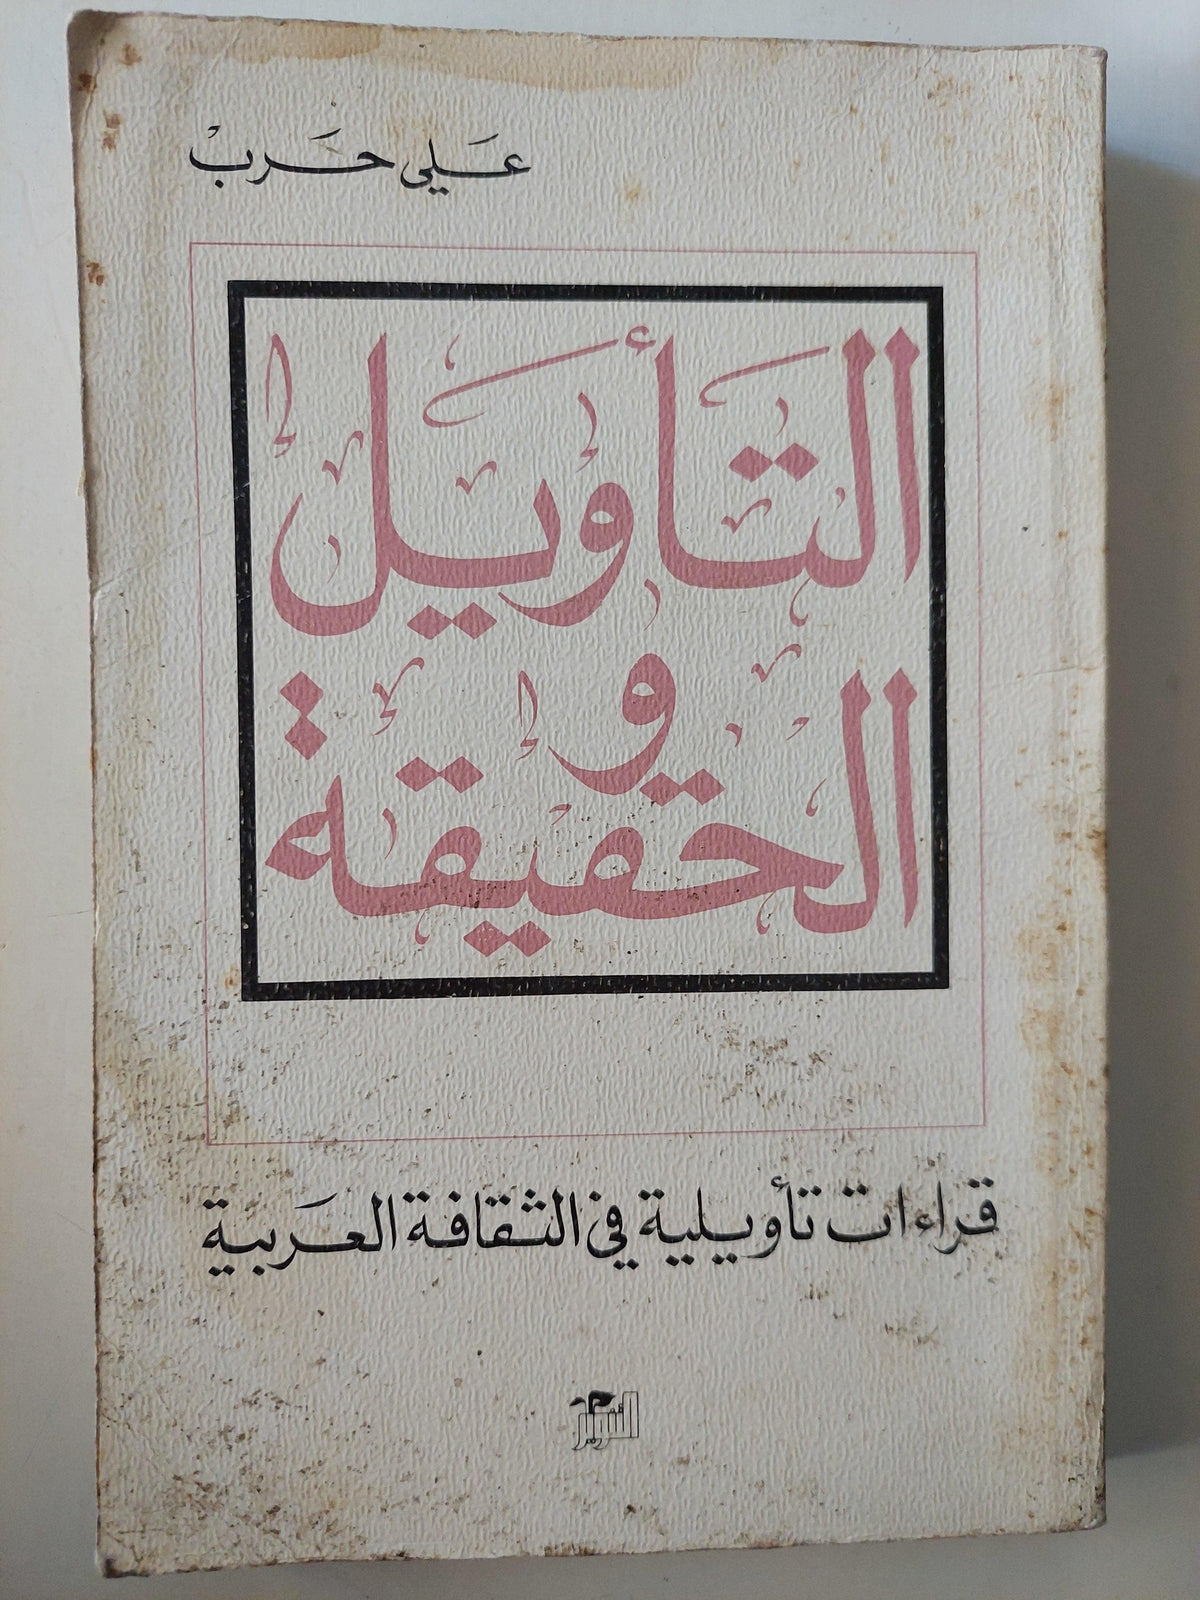 علي حرب
التأويل
و
الحقيقة
قراءات تأويلية في الثقافة العربية
التنوير